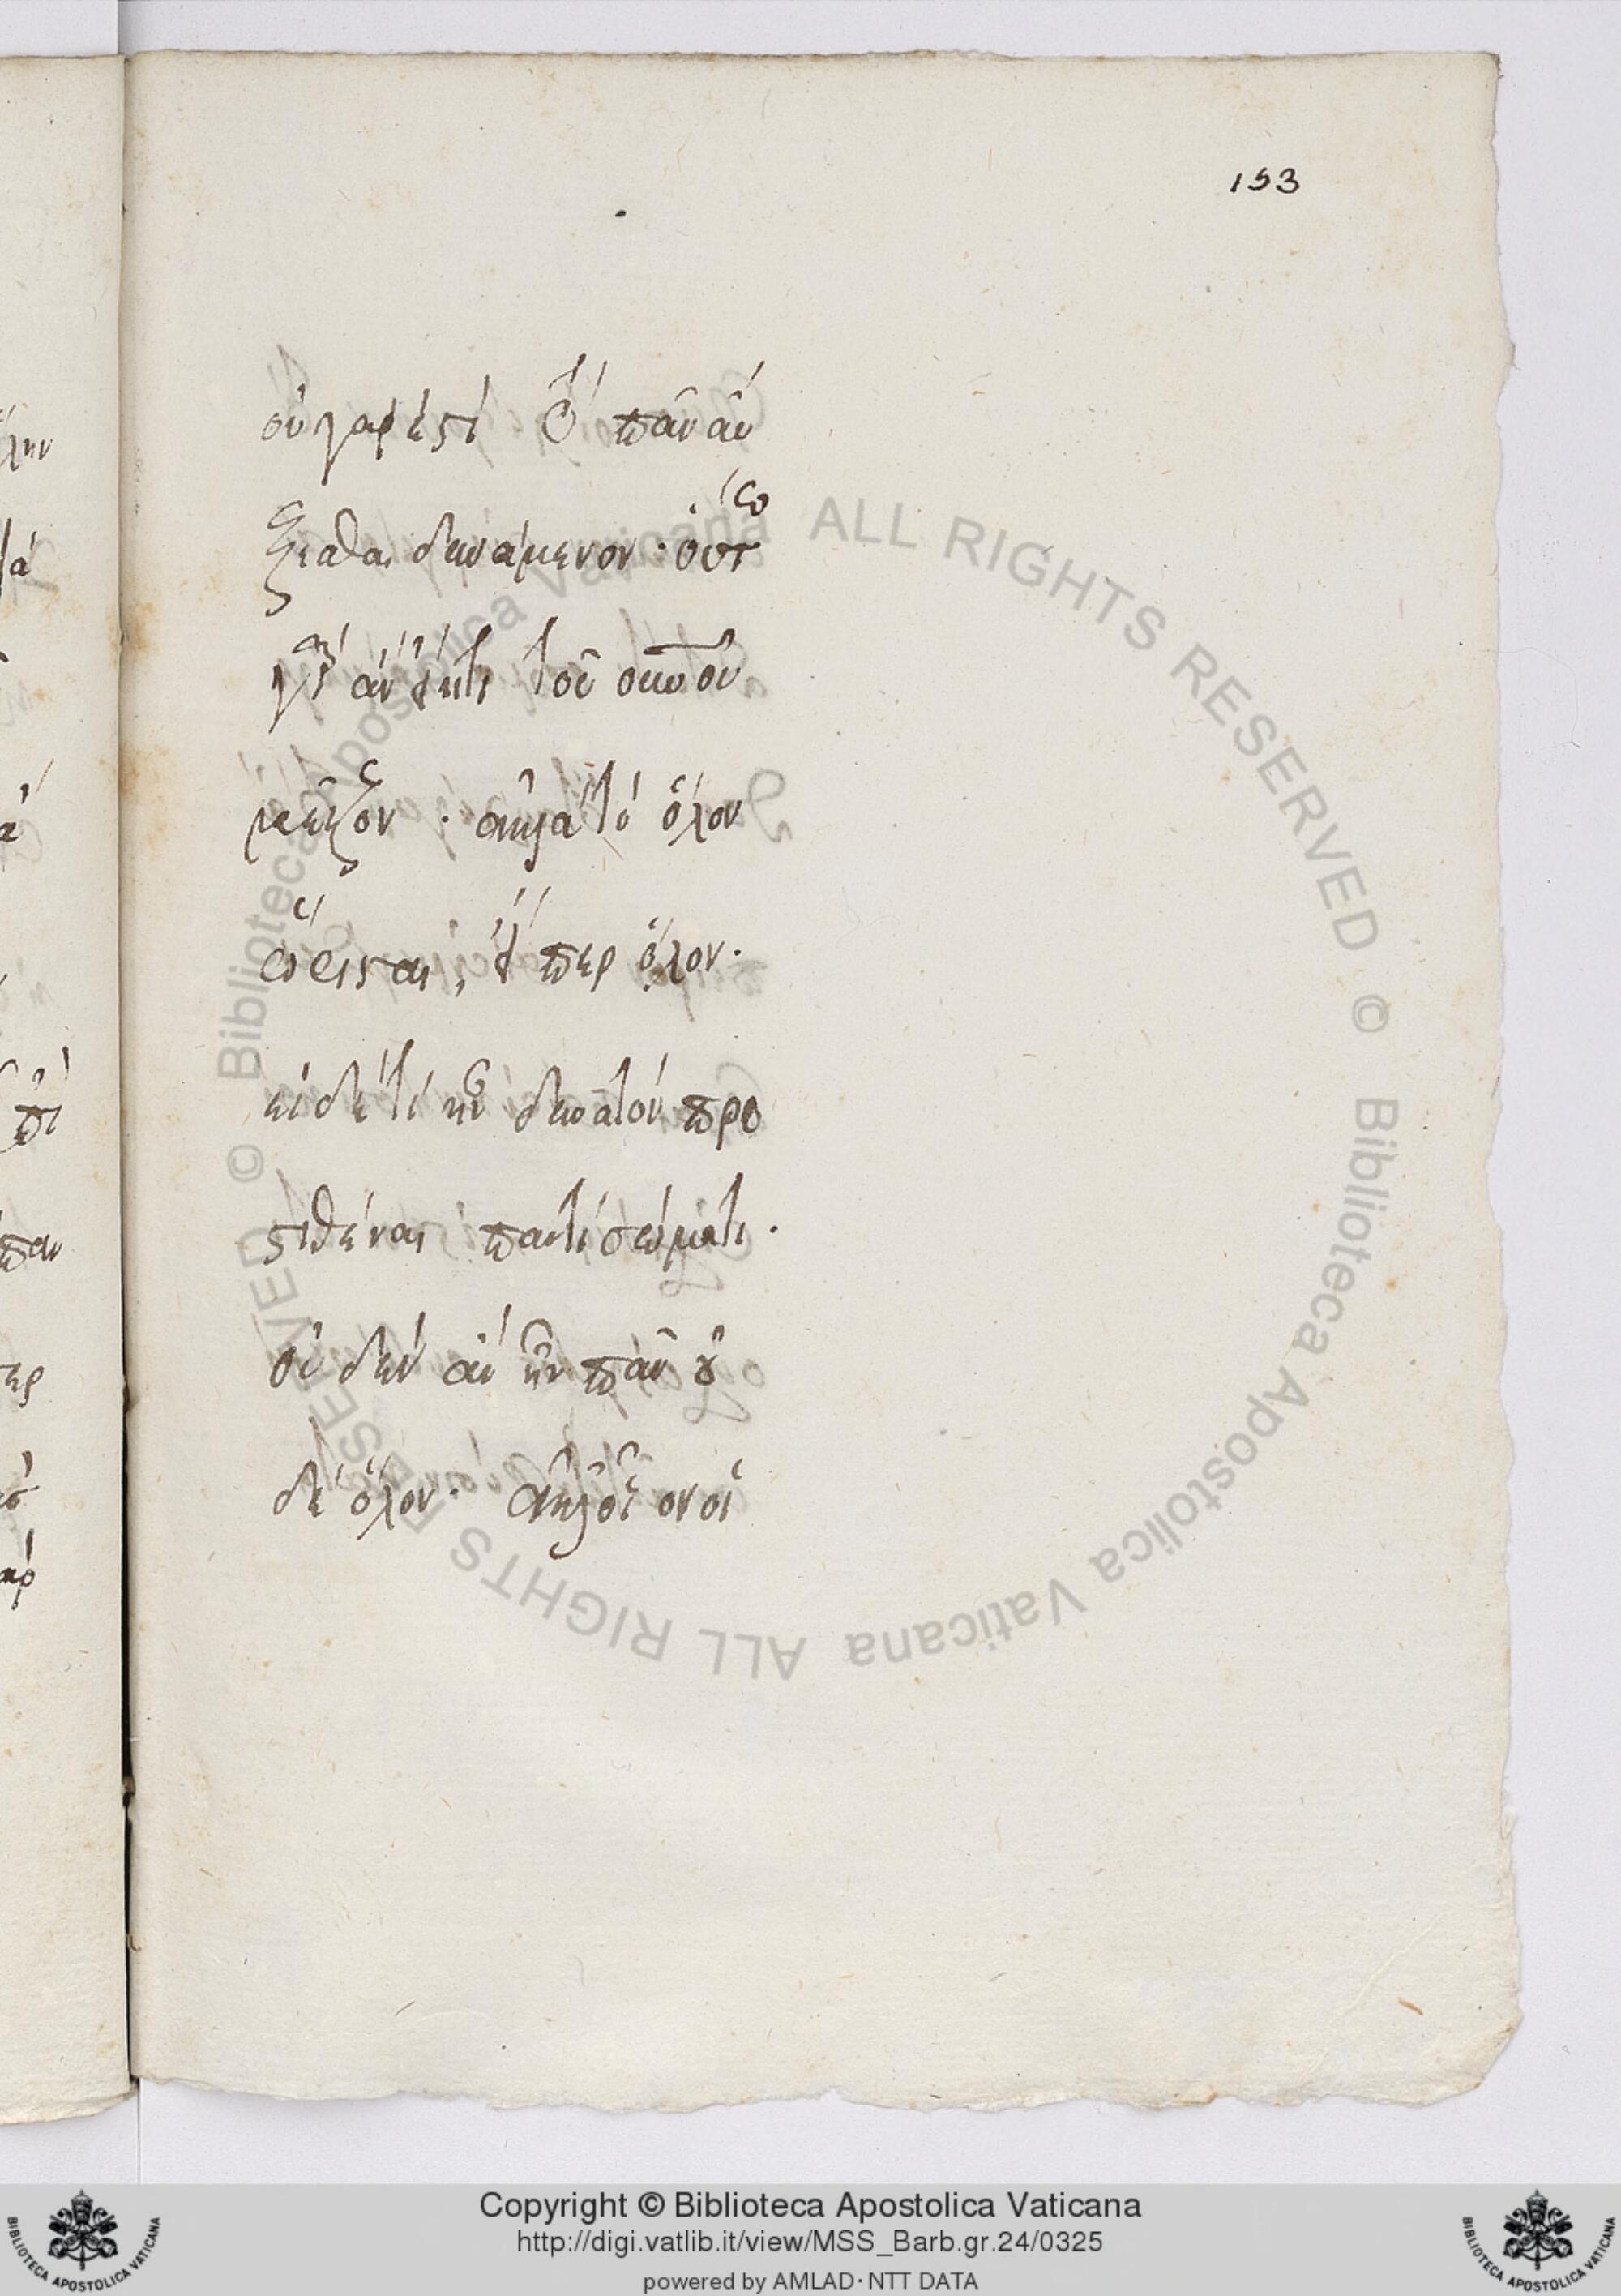 153
οὐ γάρ ἐστι τὸ πᾶν αὔ
ξεσθαι δυνάμενον· οὕτω
γὰρ ἂν ἔτι τοῦ
μεῖζον · ἀλλὰ τὸ ὅλον
ὥρισται, ᾗπερ ὅλον.
εἰ δέ τι ἦν δυνατὸν προ
στιθέναι παντὶ σώματι.
οὐδὲν ἂν ἦν πᾶν οὐ
δὲ ὅλον· ἀλλ' οἷον οἱ
© Biblioteca Apostolica Vaticana ALL RIGHTS RESERVED © Biblioteca Apostolica Vaticana ALL RIGHTS RESERVED
Copyright © Biblioteca Apostolica Vaticana
http://digi.vatlib.it/view/MSS_Barb.gr.24/0325
powered by AMLAD · NTT DATA
BIBLIOTECA APOSTOLICA VATICANA
BIBLIOTECA APOSTOLICA VATICANA